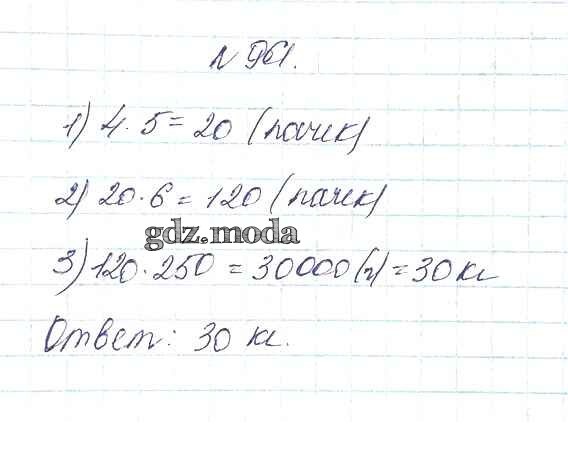 N 961.
1) 4·5=20 (пачек)
2) 20·6=120 (пачек)
gdz.moda
3) 120·250=30000(г)=30 кг
Ответ: 30 кг.